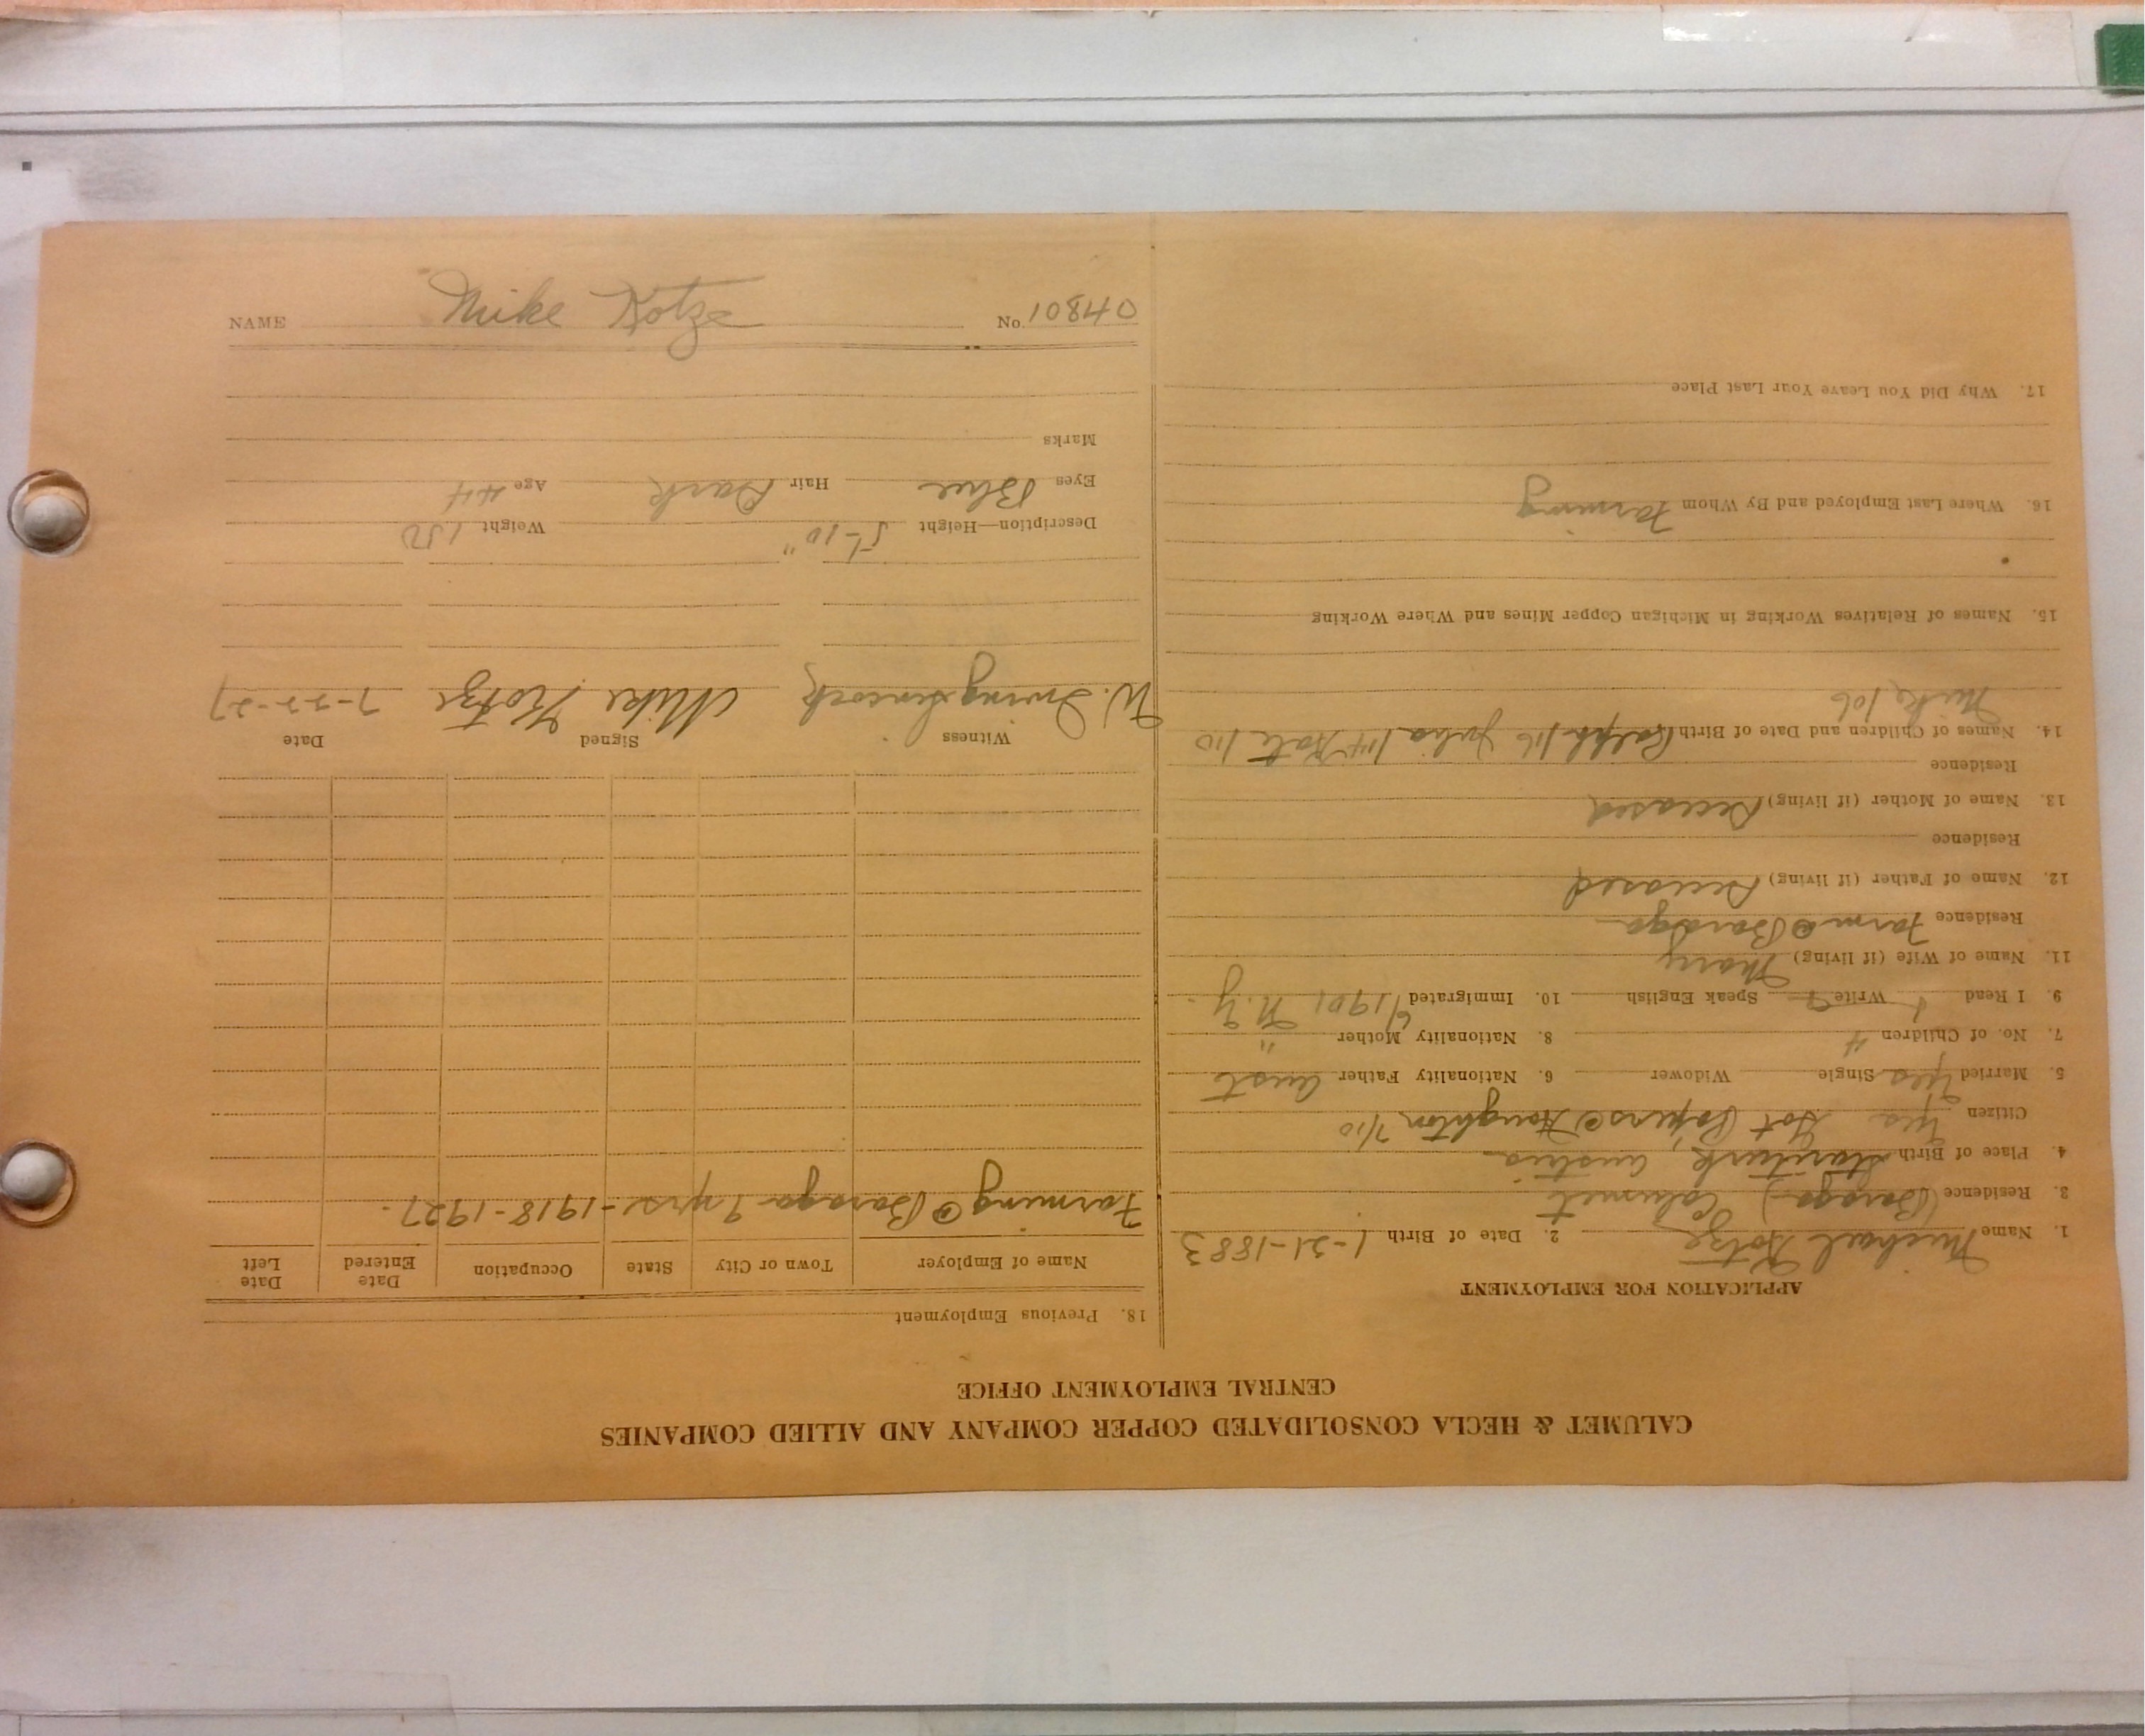 CALUMET & HECLA CONSOLIDATED COPPER COMPANY AND ALLIED COMPANIES
CENTRAL EMPLOYMENT OFFICE
APPLICATION FOR EMPLOYMENT
1. Name Michael Kotze 2. Date of Birth 1-21-1883
3. Residence (Baraga) Calumet
4. Place of Birth Austria
Citizen Yes Got Papers @ Houghton 7/10
5. Married Yes Single Widower 6. Nationality Father Aust
7. No. of Children 4 8. Nationality Mother "
9. I Read Write Speak English 10. Immigrated 6/1901 N.Y.
11. Name of Wife (if living) Mary
Residence Farm @ Baraga
12. Name of Father (if living) Deceased
Residence
13. Name of Mother (if living) Deceased
Residence
14. Names of Children and Date of Birth Ralph/16 Julia/14 Kate/10
Mike/06
15. Names of Relatives Working in Michigan Copper Mines and Where Working
16. Where Last Employed and By Whom Farming
17. Why Did You Leave Your Last Place
18. Previous Employment
Name of Employer Town or City State Occupation Date Entered Date Left
Farming @ Baraga 9 yrs. - 1918-1927.
Witness Signed Date
W. Irving Mike Kotze 7-22-27
Description—Height 5'-10" Weight 150
Eyes Blue Hair Dark Age 44
Marks
NAME Mike Kotze No. 10840